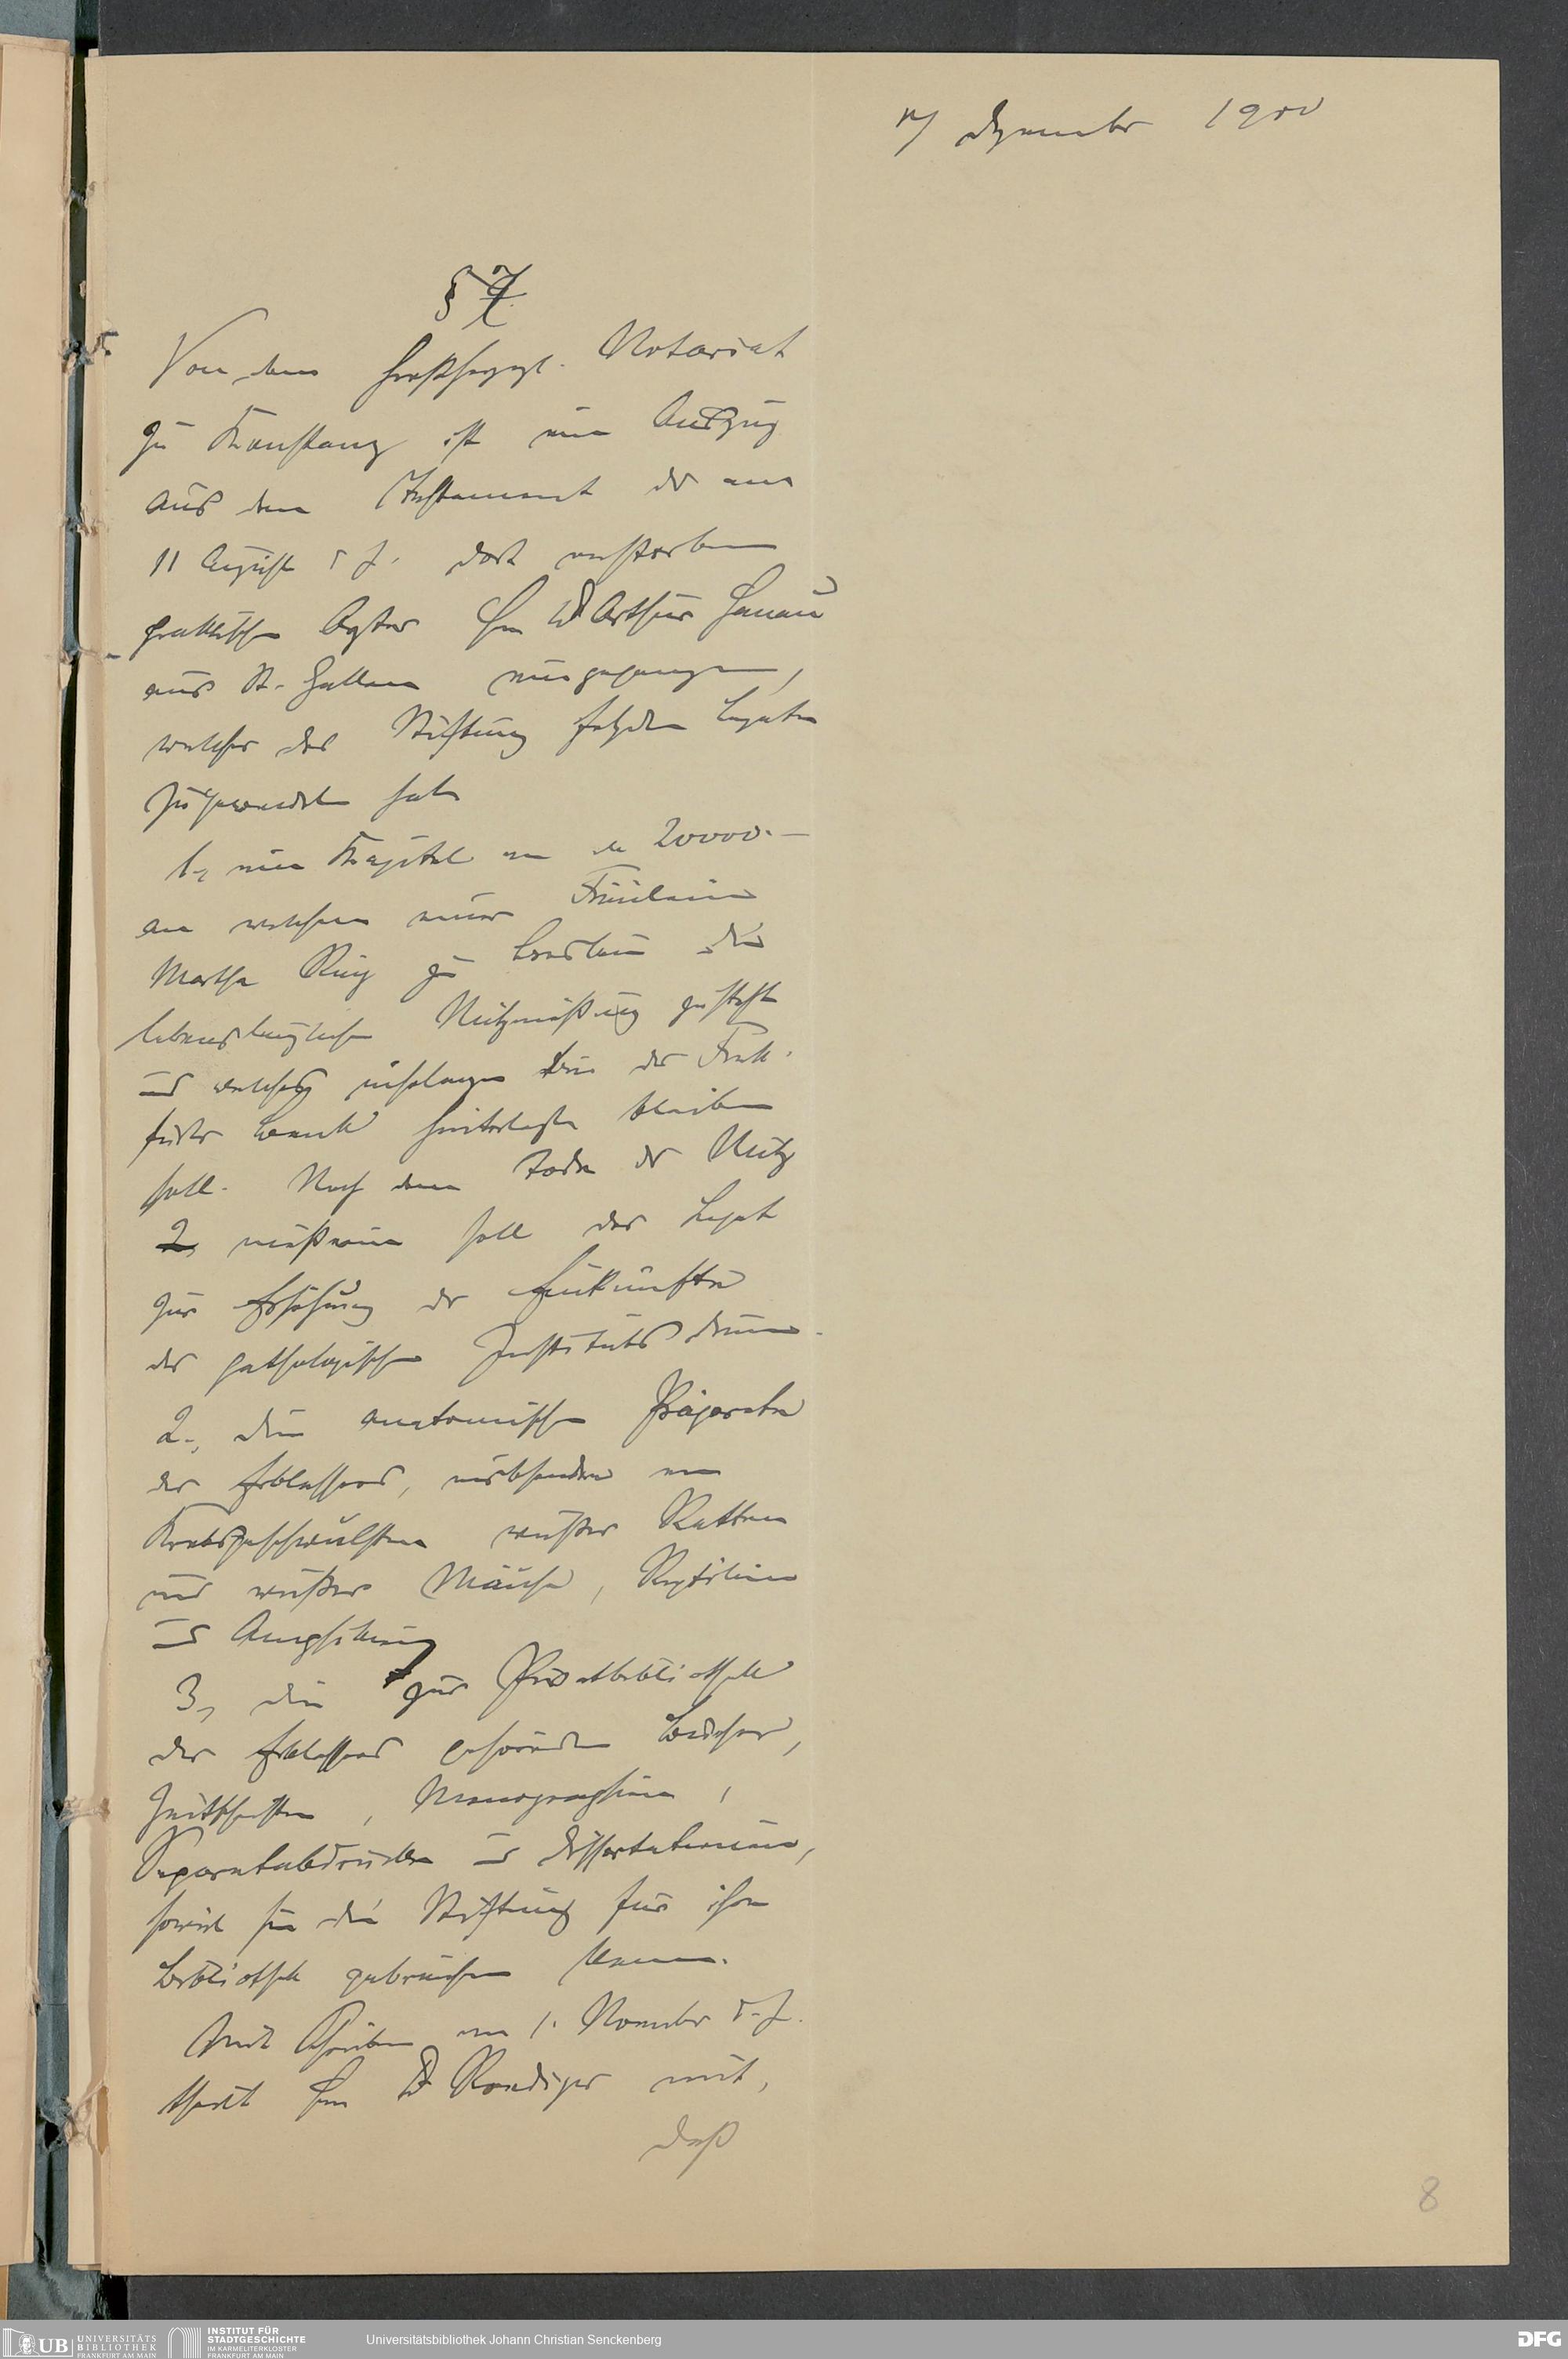 17 Dezember 1900
§ 7
Von dem Großherzgl. Notariat
zu Konstanz ist ein Auszug
aus dem Testament des am
11 August d J. dort verstorbenen
praktischen Arztes Hrn Dr Arthur Hanau
aus St. Gallen eingegangen,
welcher der Stiftung folgende Legate
zugewendet hat
1., ein Kapital von M 20000.–
an welchem einer Fräulein
Martha Ring zu Breslau die
lebenslängliche Nutznießung zusteht
und welches insolange bei der Frank-
furter Bank hinterlegt bleiben
soll. Nach dem Tode der Nutz
nießerin soll das Legat
zur Erhöhung der Einkünfte
des pathologischen Instituts dienen.
2., die anatomischen Präparate
des Erblassers, insbesondere von
Krebsgeschwülsten weißer Ratten
und weißer Mäuse, Reptilien
und Amphibien
3., die zur Privatbibliothek
des Erblassers gehörenden Bücher,
Zeitschriften, Monographien,
Separatabdrücke und Dissertationen,
soweit sie die Stiftung für ihre
Bibliothek gebrauchen kann.
Mit Schreiben vom 1. November d. J.
theilt Hrn Dr Roediger mit,
daß
8
UB UNIVERSITÄTS
BIBLIOTHEK
FRANKFURT AM MAIN
INSTITUT FÜR
STADTGESCHICHTE
IM KARMELITERKLOSTER
FRANKFURT AM MAIN
Universitätsbibliothek Johann Christian Senckenberg
DFG